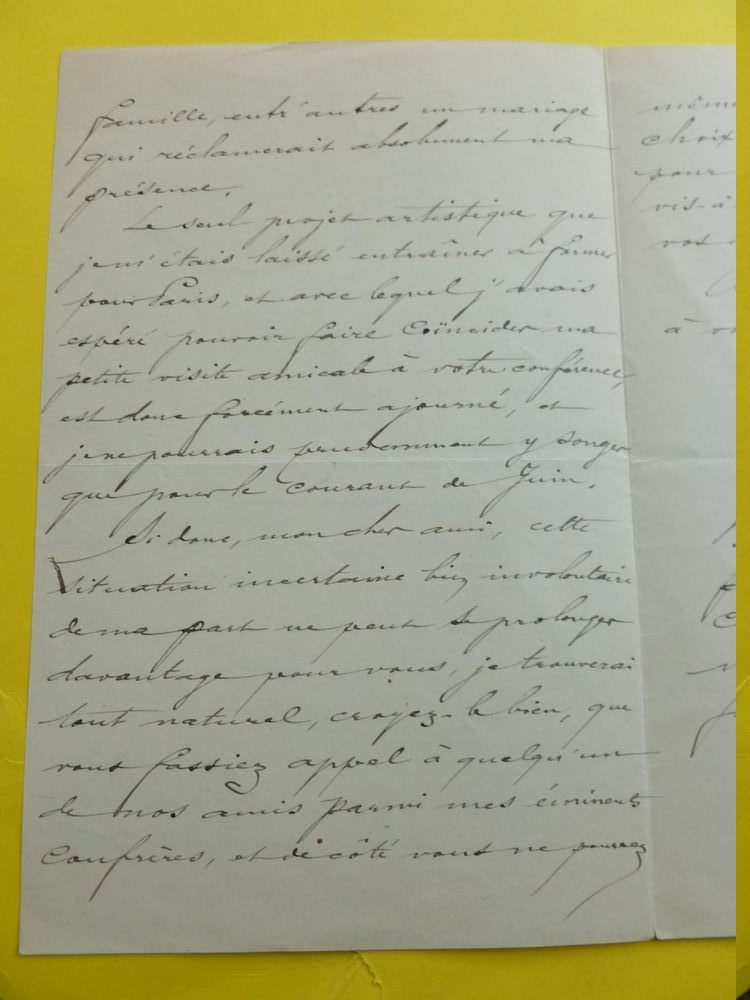 famille, entr'autres un mariage
qui réclamerait absolument ma
présence.
Le seul projet artistique que
je m'étais laissé entraîner à former
pour Paris, et avec lequel j'avais
espéré pouvoir faire Coïncider ma
petite visite amicale à votre conférence,
est donc forcément ajourné, et
je ne pourrais prudemment y songer
que pour le courant de Juin.
Si donc, mon cher ami, cette
situation incertaine bien involontaire
de ma part ne peut se prolonger
davantage pour vous, je trouverai
tout naturel, croyez-le bien, que
vous fassiez appel à quelqu'un
de nos amis parmi mes éminents
Confrères, et de côté vous ne pouvez
même
choix
pour
vis à
vos
à